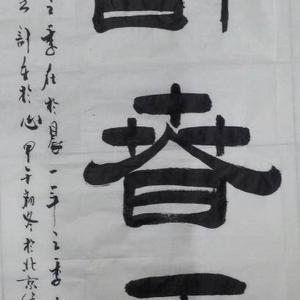 春
之季在於晨一年之季
計在於心甲午初冬於北京